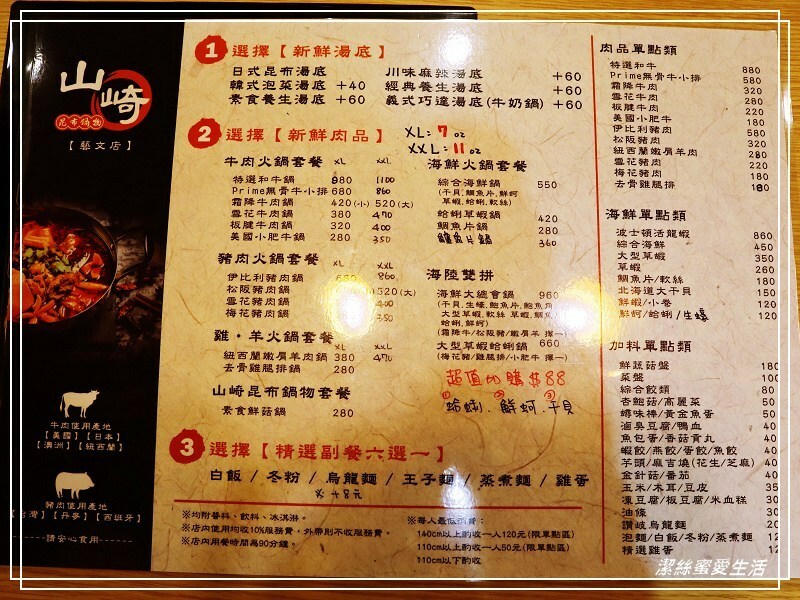 山崎
昆布鍋物
【藝文店】
牛肉使用產地
【美國】【日本】
【澳洲】【紐西蘭】
豬肉使用產地
【台灣】【丹麥】【西班牙】
-----請安心食用-----
1 選擇【新鮮湯底】
日式昆布湯底 川味麻辣湯底 +60
韓式泡菜湯底 +40 經典養生湯底 +60
素食養生湯底 +60 義式巧達湯底(牛奶鍋) +60
2 選擇【新鮮肉品】 XL:7oz
XXL:11oz
牛肉火鍋套餐 XL XXL
特選和牛鍋 980 1100
Prime無骨牛小排 680 860
霜降牛肉鍋 420(小) 520(大)
雪花牛肉鍋 380 470
板腱牛肉鍋 320 400
美國小肥牛鍋 280 350
豬肉火鍋套餐 XL XXL
伊比利豬肉鍋 860
松阪豬肉鍋 520(大)
雪花豬肉鍋 400
梅花豬肉鍋 350
雞・羊火鍋套餐 XL XXL
紐西蘭嫩肩羊肉鍋 380 470
去骨雞腿排鍋 280
山崎昆布鍋物套餐
素食鮮菇鍋 280
海鮮火鍋套餐
綜合海鮮鍋 550
(干貝,鯛魚片,鮮蚵
草蝦,蛤蜊,軟絲)
蛤蜊草蝦鍋 420
鯛魚片鍋 280
鱸魚片鍋 360
海陸雙拼
海鮮大總會鍋 960
大型草蝦蛤蜊鍋 660
(梅花豬/雞腿排/小肥牛 擇一)
超值加購 $88
蛤蜊、鮮蚵、干貝
3 選擇【精選副餐六選一】
白飯/冬粉/烏龍麵/王子麵/蒸煮麵/雞蛋
※均附醬料、飲料、冰淇淋。
※店內使用均收10%服務費,外帶則不收服務費。
※店內用餐時間為90分鐘。
※每人最低消費:
140cm以上酌收一人120元(限單點區)
110cm以上酌收一人50元(限單點區)
110cm以下酌收
肉品單點類
特選和牛 880
Prime無骨牛小排 580
霜降牛肉 320
雪花牛肉 280
板腱牛肉 220
美國小肥牛 180
伊比利豬肉 580
松阪豬肉 320
紐西蘭嫩肩羊肉 280
雪花豬肉 220
梅花豬肉 180
去骨雞腿排 180
海鮮單點類
波士頓活龍蝦 860
綜合海鮮 450
大型草蝦 350
草蝦 260
鯛魚片/軟絲 180
北海道大干貝 150
鮮蝦/小卷 120
鮮蚵/蛤蜊/生蠔 120
加料單點類
鮮蔬菇盤 180
菜盤 100
綜合餃類 80
杏鮑菇/高麗菜 50
蟳味棒/黃金魚蛋 50
滷臭豆腐/鴨血 40
魚包蛋/香菇貢丸 40
蝦餃/燕餃/蛋餃/魚餃 40
芋頭/麻吉燒(花生/芝麻) 40
金針菇/番茄 40
玉米/木耳/豆皮 35
凍豆腐/板豆腐/米血糕 30
油條 30
讚岐烏龍麵 20
泡麵/白飯/冬粉/蒸煮麵
精選雞蛋
潔絲蜜愛生活